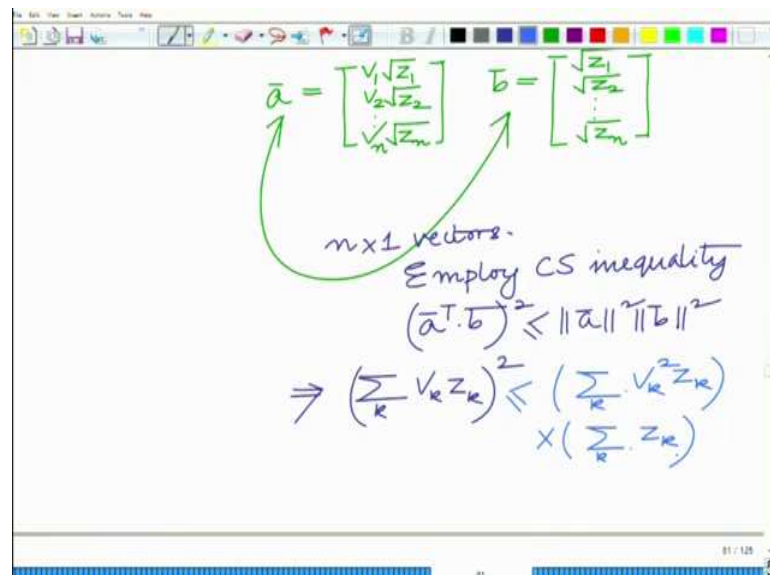 File Edit View Insert Actions Tools Help
B I
ā = [ v₁√z₁ b̄ = [ √z₁
v₂√z₂ √z₂
⋮ ⋮
vₙ√zₙ ] √zₙ ]
n×1 vectors.
Employ CS inequality
(āᵀ·b̄)² ≤ ‖ā‖²‖b̄‖²
⇒ (∑ₖ Vₖ Zₖ)² ≤ (∑ₖ. Vₖ² Zₖ)
×(∑ₖ. Zₖ.)
81 / 128